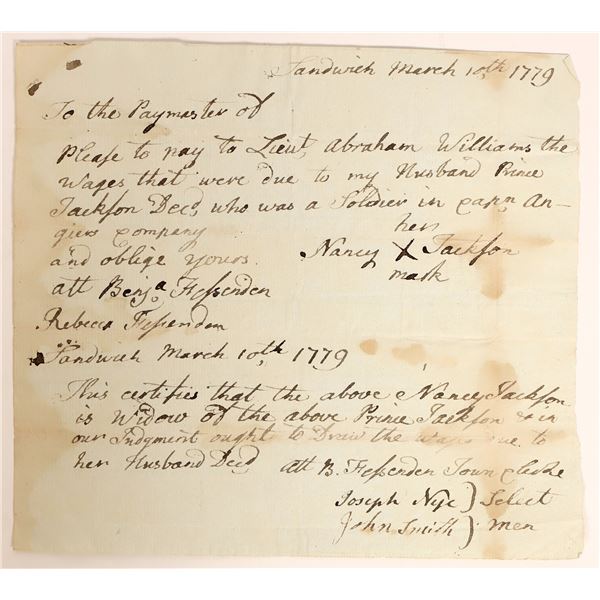 Sandwich March 10th 1779
To the Paymaster of
Please to pay to Lieut, Abraham Williams the
Wages that were due to my Husband Prince
Jackson Decd, who was a Soldier in capn An-
giers company
and oblige yours. Nancy her X mark Jackson
att Benja Fessenden
Rebecca Fessenden
Sandwich March 10th 1779
This certifies that the above Nancy Jackson
is Widow of the above Prince Jackson & in
our Judgment ought to Draw the Wages due to
her Husband Decd att B. Fessenden Town clerke
Joseph Nye } Select
John Smith } men